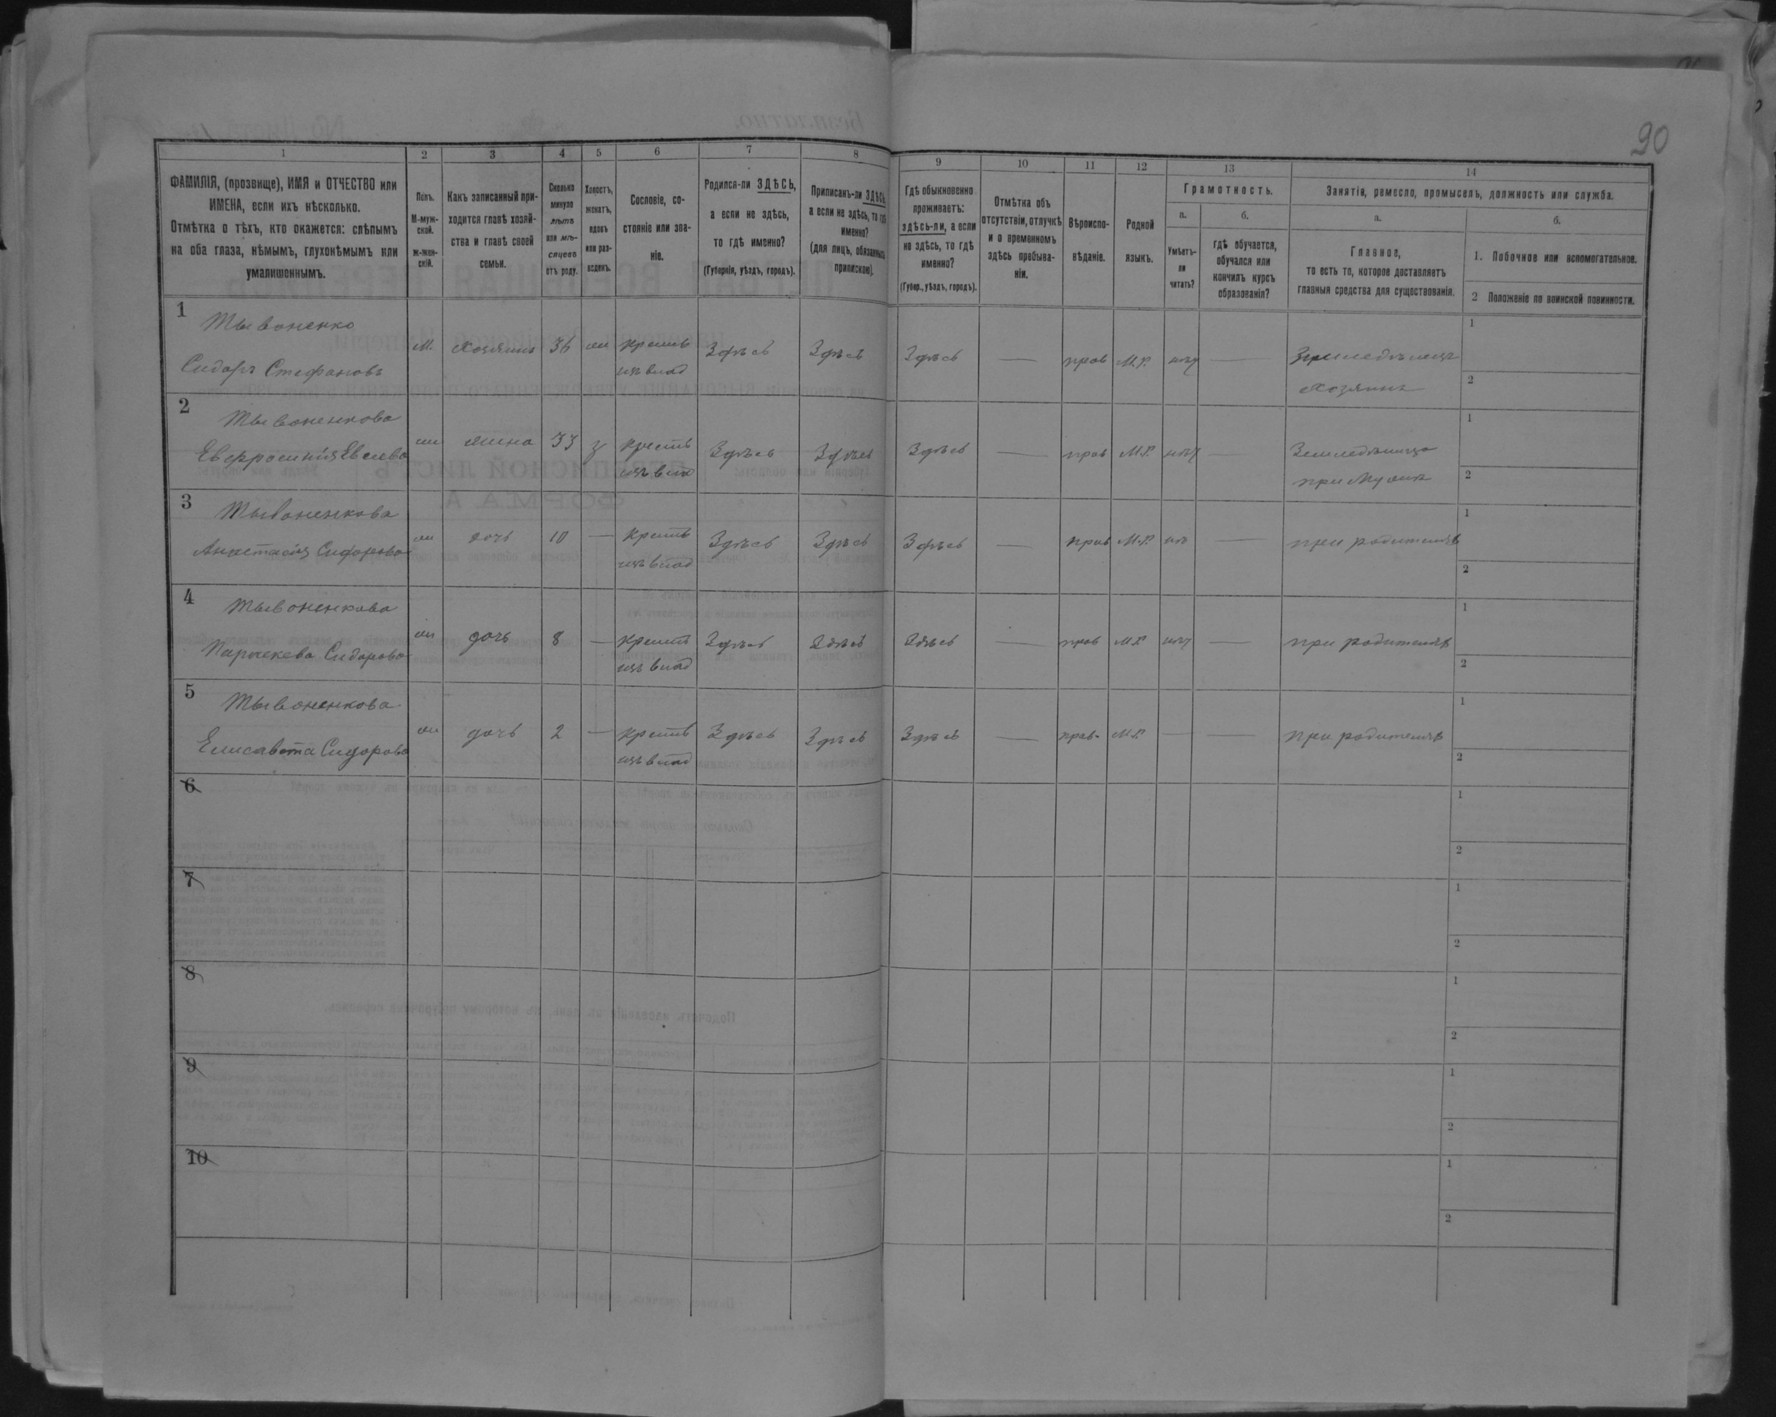 90
1 2 3 4 5 6 7 8 9 10 11 12 13 14
ФАМИЛІЯ, (прозвище), ИМЯ и ОТЧЕСТВО или
ИМЕНА, если ихъ нѣсколько.
Отмѣтка о тѣхъ, кто окажется: слѣпымъ
на оба глаза, нѣмымъ, глухонѣмымъ или
умалишоннымъ.
Полъ.
М-муж-
ской.
ж-жен-
скій.
Какъ записанный при-
ходится главѣ хозяй-
ства и главѣ своей
семьи.
Сколько
минуло
лѣтъ
или мѣ-
сяцевъ
отъ роду.
Холостъ,
женатъ,
вдовъ
или раз-
веденъ.
Сословіе, со-
стояніе или зва-
ніе.
Родился-ли ЗДѢСЬ,
а если не здѣсь,
то гдѣ именно?
(Губернія, уѣздъ, городъ).
Приписанъ-ли ЗДѢСЬ,
а если не здѣсь, то гдѣ
именно?
(для лицъ, обязанныхъ
припискою).
Гдѣ обыкновенно
проживаетъ:
здѣсь-ли, а если
не здѣсь, то гдѣ
именно?
(Губер., уѣздъ, городъ).
Отмѣтка объ
отсутствіи, отлучкѣ
и о временномъ
здѣсь пребыва-
ніи.
Вѣроиспо-
вѣданіе.
Родной
языкъ.
Грамотность.
а.
Умѣетъ-
ли
читать?
б.
гдѣ обучается,
обучался или
кончилъ курсъ
образованія?
Занятія, ремесло, промыселъ, должность или служба.
а.
Главное,
то есть то, которое доставляетъ
главныя средства для существованія.
б.
1. Побочное или вспомогательное.
2 Положеніе по воинской повинности.
1 Тывоненко
Сидоръ Стефановъ М. Хозяинъ 36 Крестъ Здѣсь Здѣсь Здѣсь — прав М.Р. — Земледѣлецъ
изъ влад Хозяинъ
1
2
2 Тывоненкова
Евфросинія жена 33 Крестъ Здѣсь Здѣсь Здѣсь — прав М.Р. — Земледѣлица
изъ влад при мужѣ
1
2
3 Тывоненкова
Анастасія Сидорова дочь 10 — Крестъ Здѣсь Здѣсь Здѣсь — прав М.Р. — при родителяхъ
изъ влад
1
2
4 Тывоненкова
Параскева Сидорова дочь 8 — Крестъ Здѣсь Здѣсь Здѣсь — прав М.Р. — при родителяхъ
изъ влад
1
2
5 Тывоненкова
Елисавета Сидорова дочь 2 — Крестъ Здѣсь Здѣсь Здѣсь — прав. М.Р. — — при родителяхъ
изъ влад
1
2
6
1
2
7
1
2
8
1
2
9
1
2
10
1
2